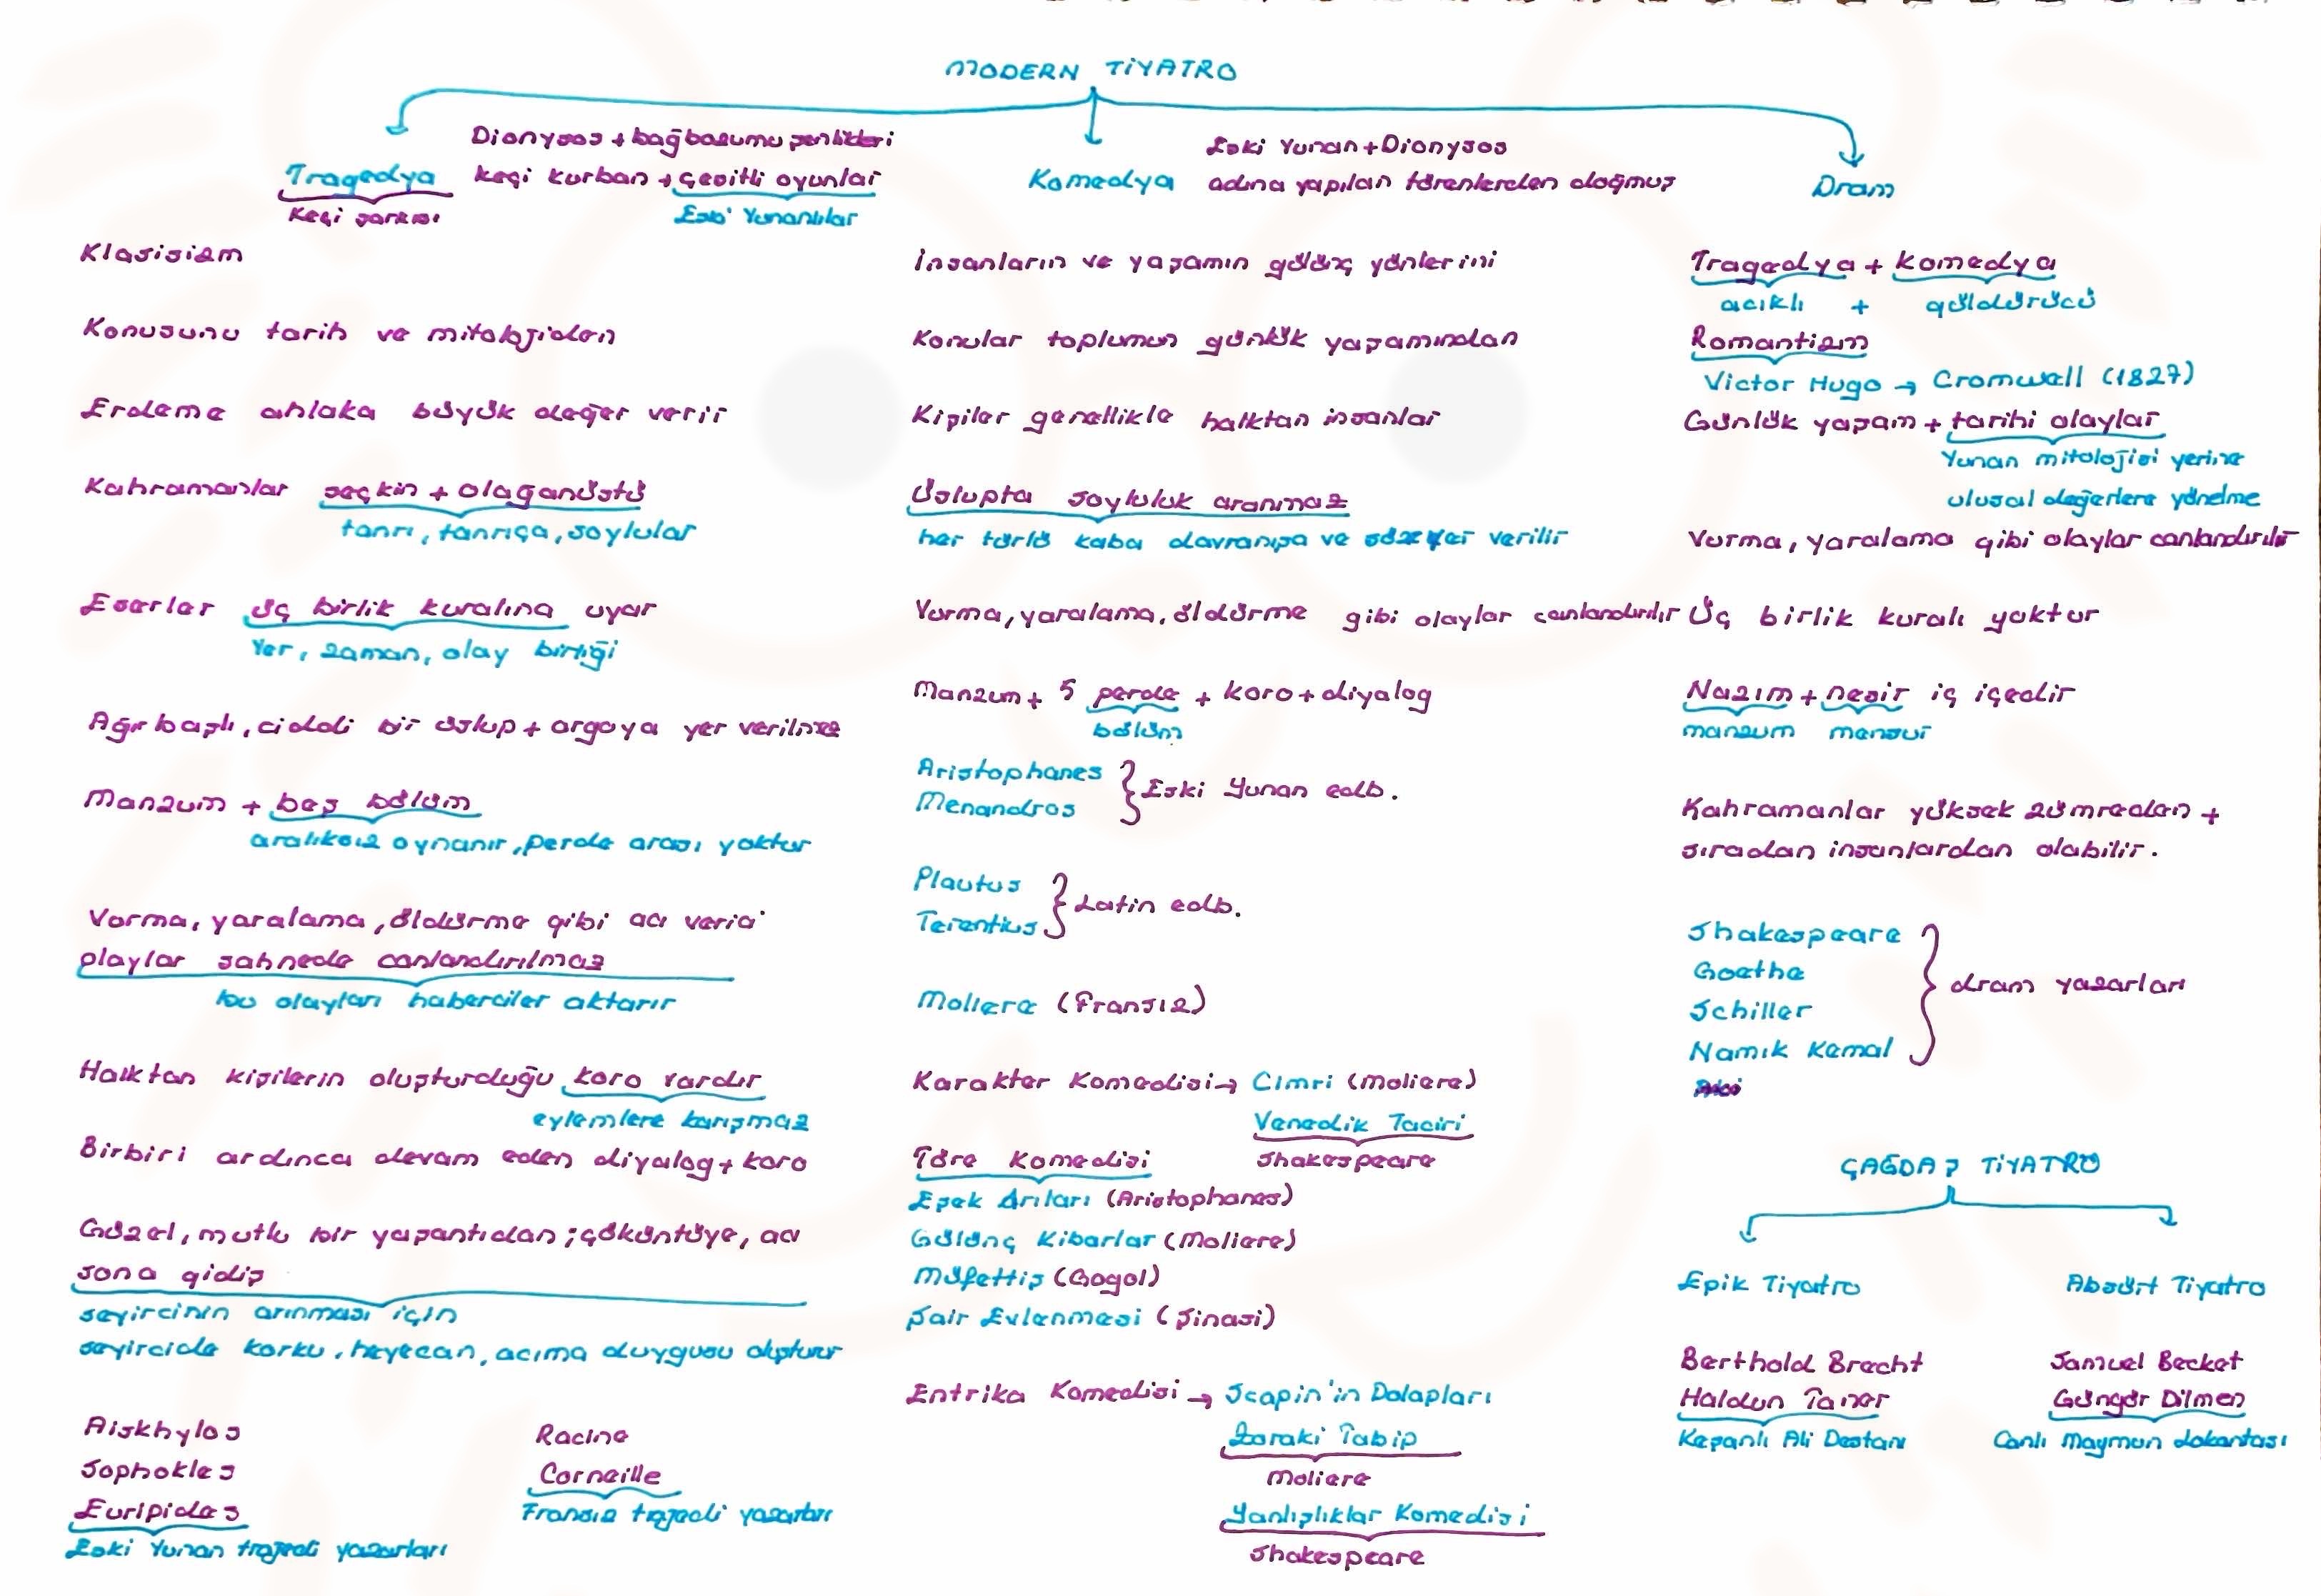 MODERN TİYATRO
Tragedya
Keçi şarkısı
Dionysos + bağbozumu şenlikleri
keçi kurban + çeşitli oyunlar
Eski Yunanlılar
Klasisizm
Konusunu tarih ve mitolojiden
Erdeme ahlaka büyük değer verir
Kahramanlar seçkin + olağanüstü
tanrı, tanrıça, soylular
Eserler üç birlik kuralına uyar
Yer, zaman, olay birliği
Ağır başlı, ciddi bir üslup + argoya yer verilmez
Manzum + beş bölüm
aralıksız oynanır, perde arası yoktur
Vurma, yaralama, öldürme gibi acı verici
olaylar sahnede canlandırılmaz
bu olayları haberciler aktarır
Halktan kişilerin oluşturduğu koro vardır
eylemlere karışmaz
Birbiri ardınca devam eden diyalog + koro
Güzel, mutlu bir yaşantıdan; çöküntüye, acı
sona gidiş
seyircinin arınması için
seyircide korku, heyecan, acıma duygusu oluşturur
Aiskhylos
Sophokles
Euripides
Eski Yunan trajedi yazarları
Racine
Corneille
Fransız trajedi yazarları
Komedya
Eski Yunan + Dionysos
adına yapılan törenlerden doğmuş
İnsanların ve yaşamın gülünç yönlerini
Konular toplumun günlük yaşamından
Kişiler genellikle halktan insanlar
Üslupta soyluluk aranmaz
her türlü kaba davranışa ve söze yer verilir
Vurma, yaralama, öldürme gibi olaylar canlandırılır
Manzum + 5 perde + koro + diyalog
bölüm
Aristophanes
Menandros
Eski Yunan edb.
Plautus
Terentius
Latin edb.
Moliere (Fransız)
Karakter Komedisi → Cimri (Moliere)
Venedik Taciri
Shakespeare
Töre Komedisi
Eşek Arıları (Aristophanes)
Gülünç Kibarlar (Moliere)
Müfettiş (Gogol)
Şair Evlenmesi (Şinasi)
Entrika Komedisi → Scapin'in Dolapları
Zoraki Tabip
Moliere
Yanlışlıklar Komedisi
Shakespeare
Dram
Tragedya + komedya
acıklı + güldürücü
Romantizm
Victor Hugo → Cromwell (1827)
Günlük yaşam + tarihi olaylar
Yunan mitolojisi yerine
ulusal değerlere yönelme
Vurma, yaralama gibi olaylar canlandırılır
Üç birlik kuralı yoktur
Nazım + nesir iç içedir
manzum mensur
Kahramanlar yüksek zümreden +
sıradan insanlardan olabilir.
Shakespeare
Goethe
Schiller
Namık Kemal
dram yazarları
ÇAĞDAŞ TİYATRO
Epik Tiyatro
Berthold Brecht
Haldun Taner
Keşanlı Ali Destanı
Absürt Tiyatro
Samuel Becket
Güngör Dilmen
Canlı Maymun Lokantası